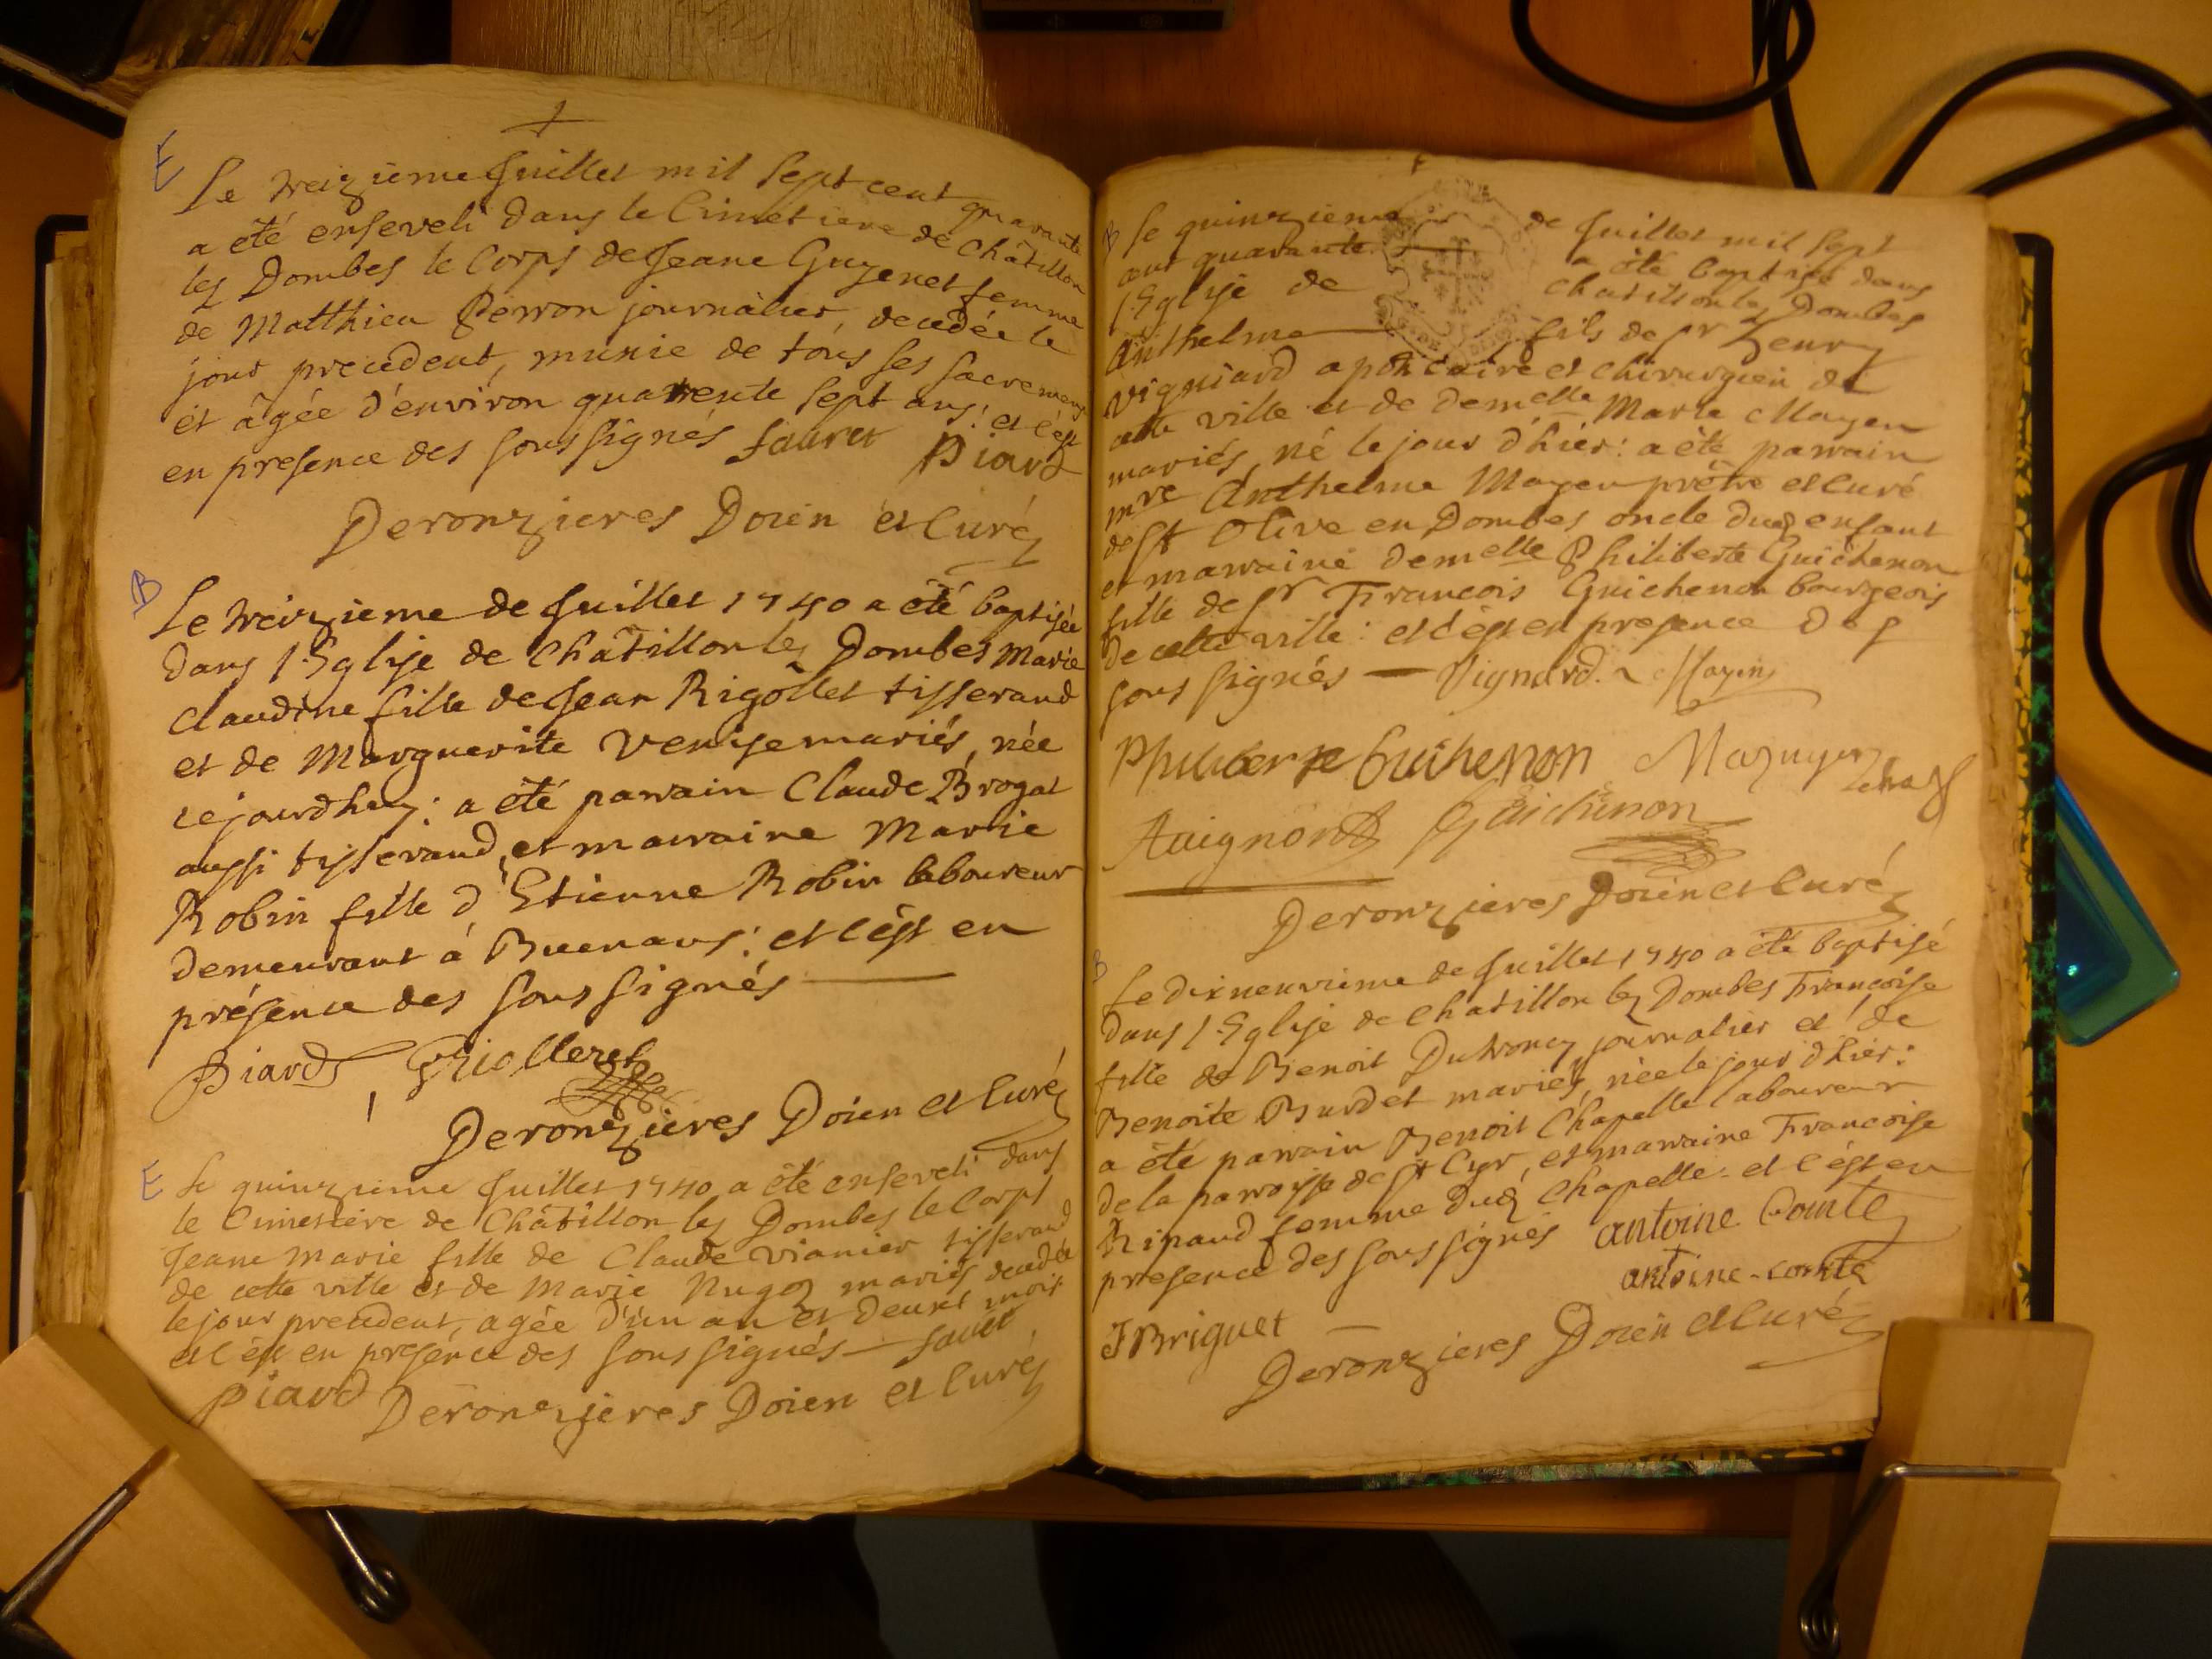 E
Le treizieme Juillet mil sept cent quarante
a été enseveli dans le Cimetiere de Châtillon
les Dombes le Corps de Jeane Guyenet femme
de Matthieu Perron journalier, decedée le
jour precedent, munie de tous ses sacremens
et âgée d'environ quarente sept ans: et c'est
en presence des soussignés sauret Piard
Deronzieres Doien et Curé
B
Le treizieme de Juillet 1740 a été baptisée
dans l'Eglise de Châtillon les Dombes Marie
Claudine fille de Jean Rigollet tisserand
et de Marguerite Venise mariés, née
cejourdhuy: a été parrain Claude Brogat
aussi tisserand, et marraine Marie
Robin fille d'Etienne Robin laboureur
demeurant à Buenans: et c'est en
présence des soussignés
Piard Griolleret
Deronzieres Doien et Curé
E
Le quinzieme Juillet 1740 a été enseveli dans
le Cimetiére de Châtillon les Dombes le Corps
Jeane Marie fille de Claude Vianier tisserand
de cette ville et de Marie mariés decedée
le jour precedent, agée d'un an et deux mois
et c'est en presence des soussignés sauret
Piard Deronzieres Doien et Curé
B
Le quinzieme de Juillet mil sept
cent quarante a été baptisé dans
l'Eglise de Chatillon les Dombes
Anthelme fils de sr henry
Vigniard apoticaire et chirurgien de
cette ville et de demelle Marie Mayen
mariés, né le jour d'hier: a été parrain
mre Anthelme Mayen prêtre et Curé
de St Olive en Dombes oncle dud enfant
et marraine demelle Philiberte Guichenon
fille de sr Francois Guichenon bourgeois
de cette ville: et c'est en presence des
soussignés Vignard. Mayen
Philiberte Guichenon Mazuyer
Auignon Guichenon
Deronzieres Doien et Curé
B
Le dixneuvieme de Juillet 1740 a été baptisé
dans l'Eglise de Chatillon les Dombes Francoise
fille de Benoit Dutroncy journalier et de
Benoite Burdet mariés, née le jour d'hier:
a été parrain Benoit Chapelle laboureur
de la parroisse de St Cyr, et marraine Francoise
Ripaud femme dud Chapelle: et c'est en
presence des soussignés antoine Comte
antoine-comte
J Briguet
Deronzieres Doien et Curé